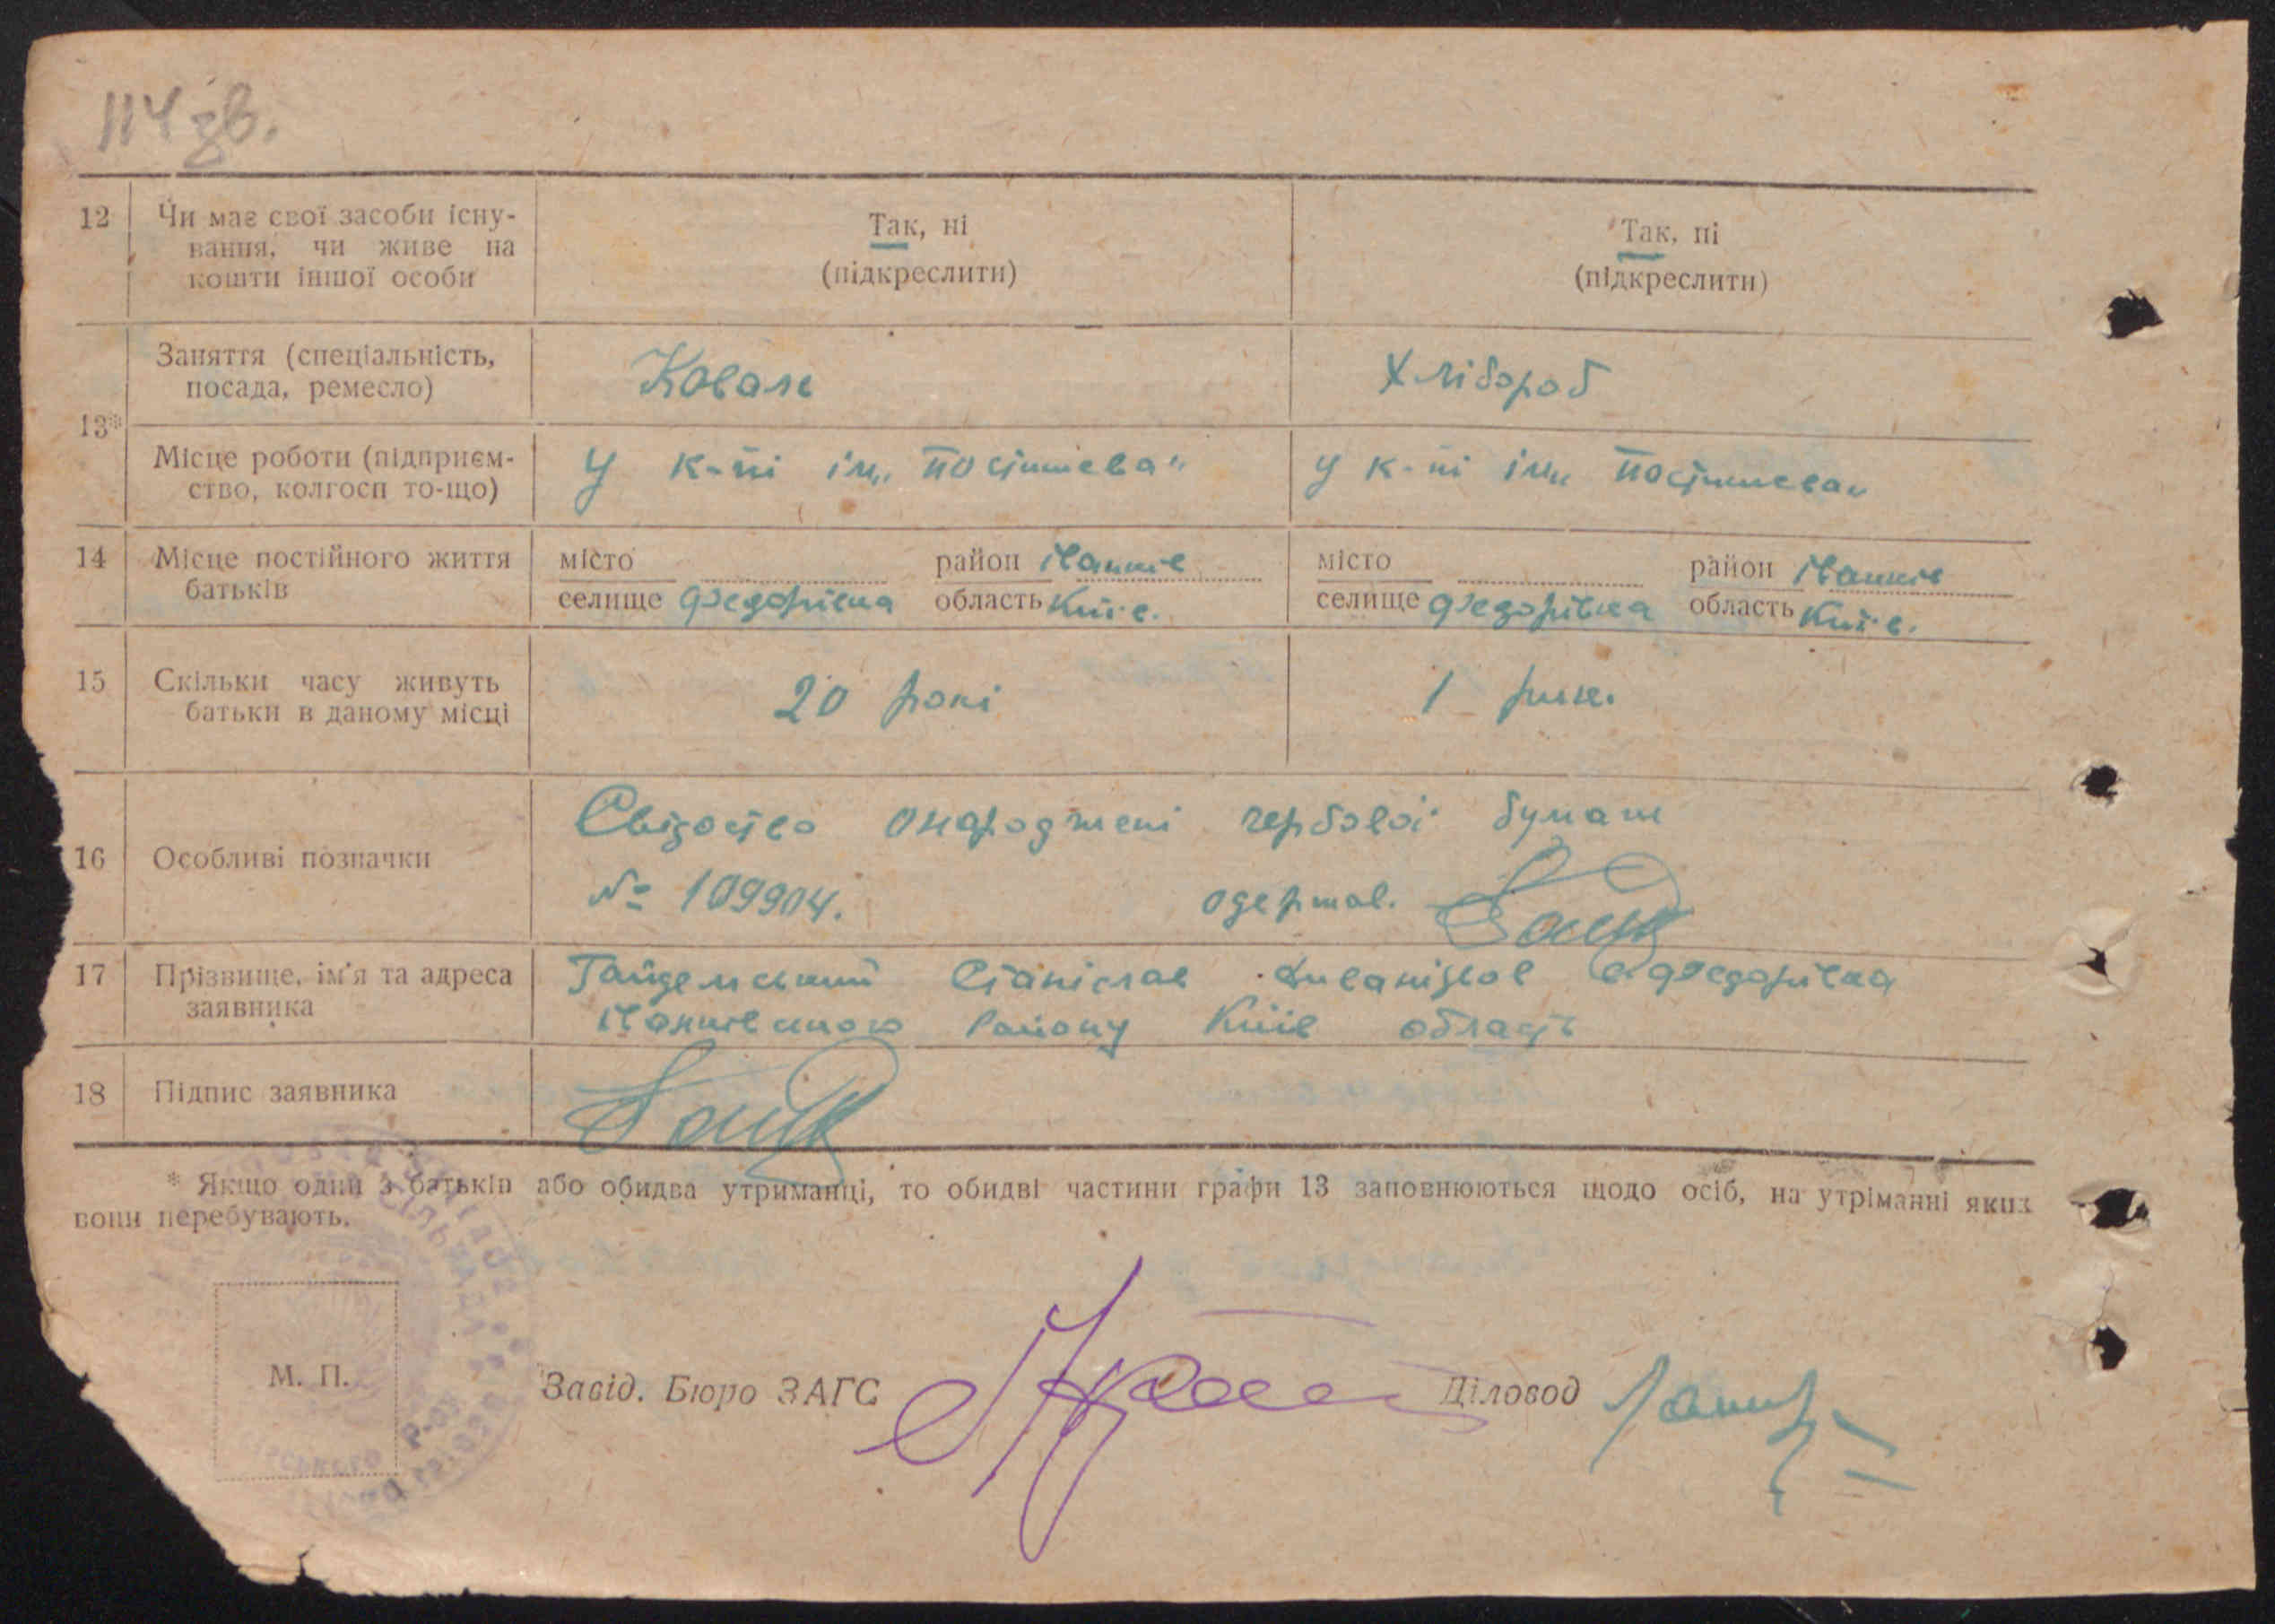 114 зв.
12 Чи має свої засоби існу- Так, ні Так, ні
вання, чи живе на (підкреслити) (підкреслити)
кошти іншої особи
13* Заняття (спеціальність, Коваль Хлібороб
посада, ремесло)
Місце роботи (підприєм- У к-пі ім. „Постишева" у к-пі ім. „Постишева"
ство, колгосп то-що)
14 Місце постійного життя місто район Іванків місто район Іванків
батьків селище Федорівка область Київ. селище Федорівка область Київ.
15 Скільки часу живуть 20 рокі 1 рик.
батьки в даному місці
16 Особливі позначки Свідоство онароджені гербовоі бумаги
№ 109904. одержав.
17 Прізвище, ім'я та адреса Станіслав с Федорівка
заявника Іванківського Району Київ область
18 Підпис заявника
* Якщо один з батьків або обидва утриманці, то обидві частини графи 13 заповнюються щодо осіб, на утріманні яких
вони перебувають.
М. П. Завід. Бюро ЗАГС Діловод